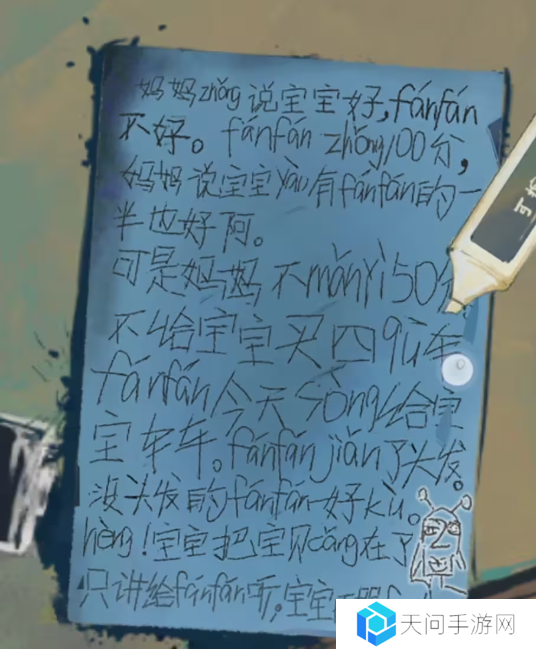 妈妈zhǒng说宝宝好,fánfán
不好。fánfán zhǒng100分,
妈妈说宝宝yàu有fánfán的一
半也好阿。
可是妈妈不mǎnyì50分
不给宝宝买四qū车
fánfán今天sòng给宝
宝车车。fánfán jiǎn了头发。
没头发的fánfán一好kù。
hèng!宝宝把宝贝cáng在了
只讲给fánfán听,宝宝
天问手游网